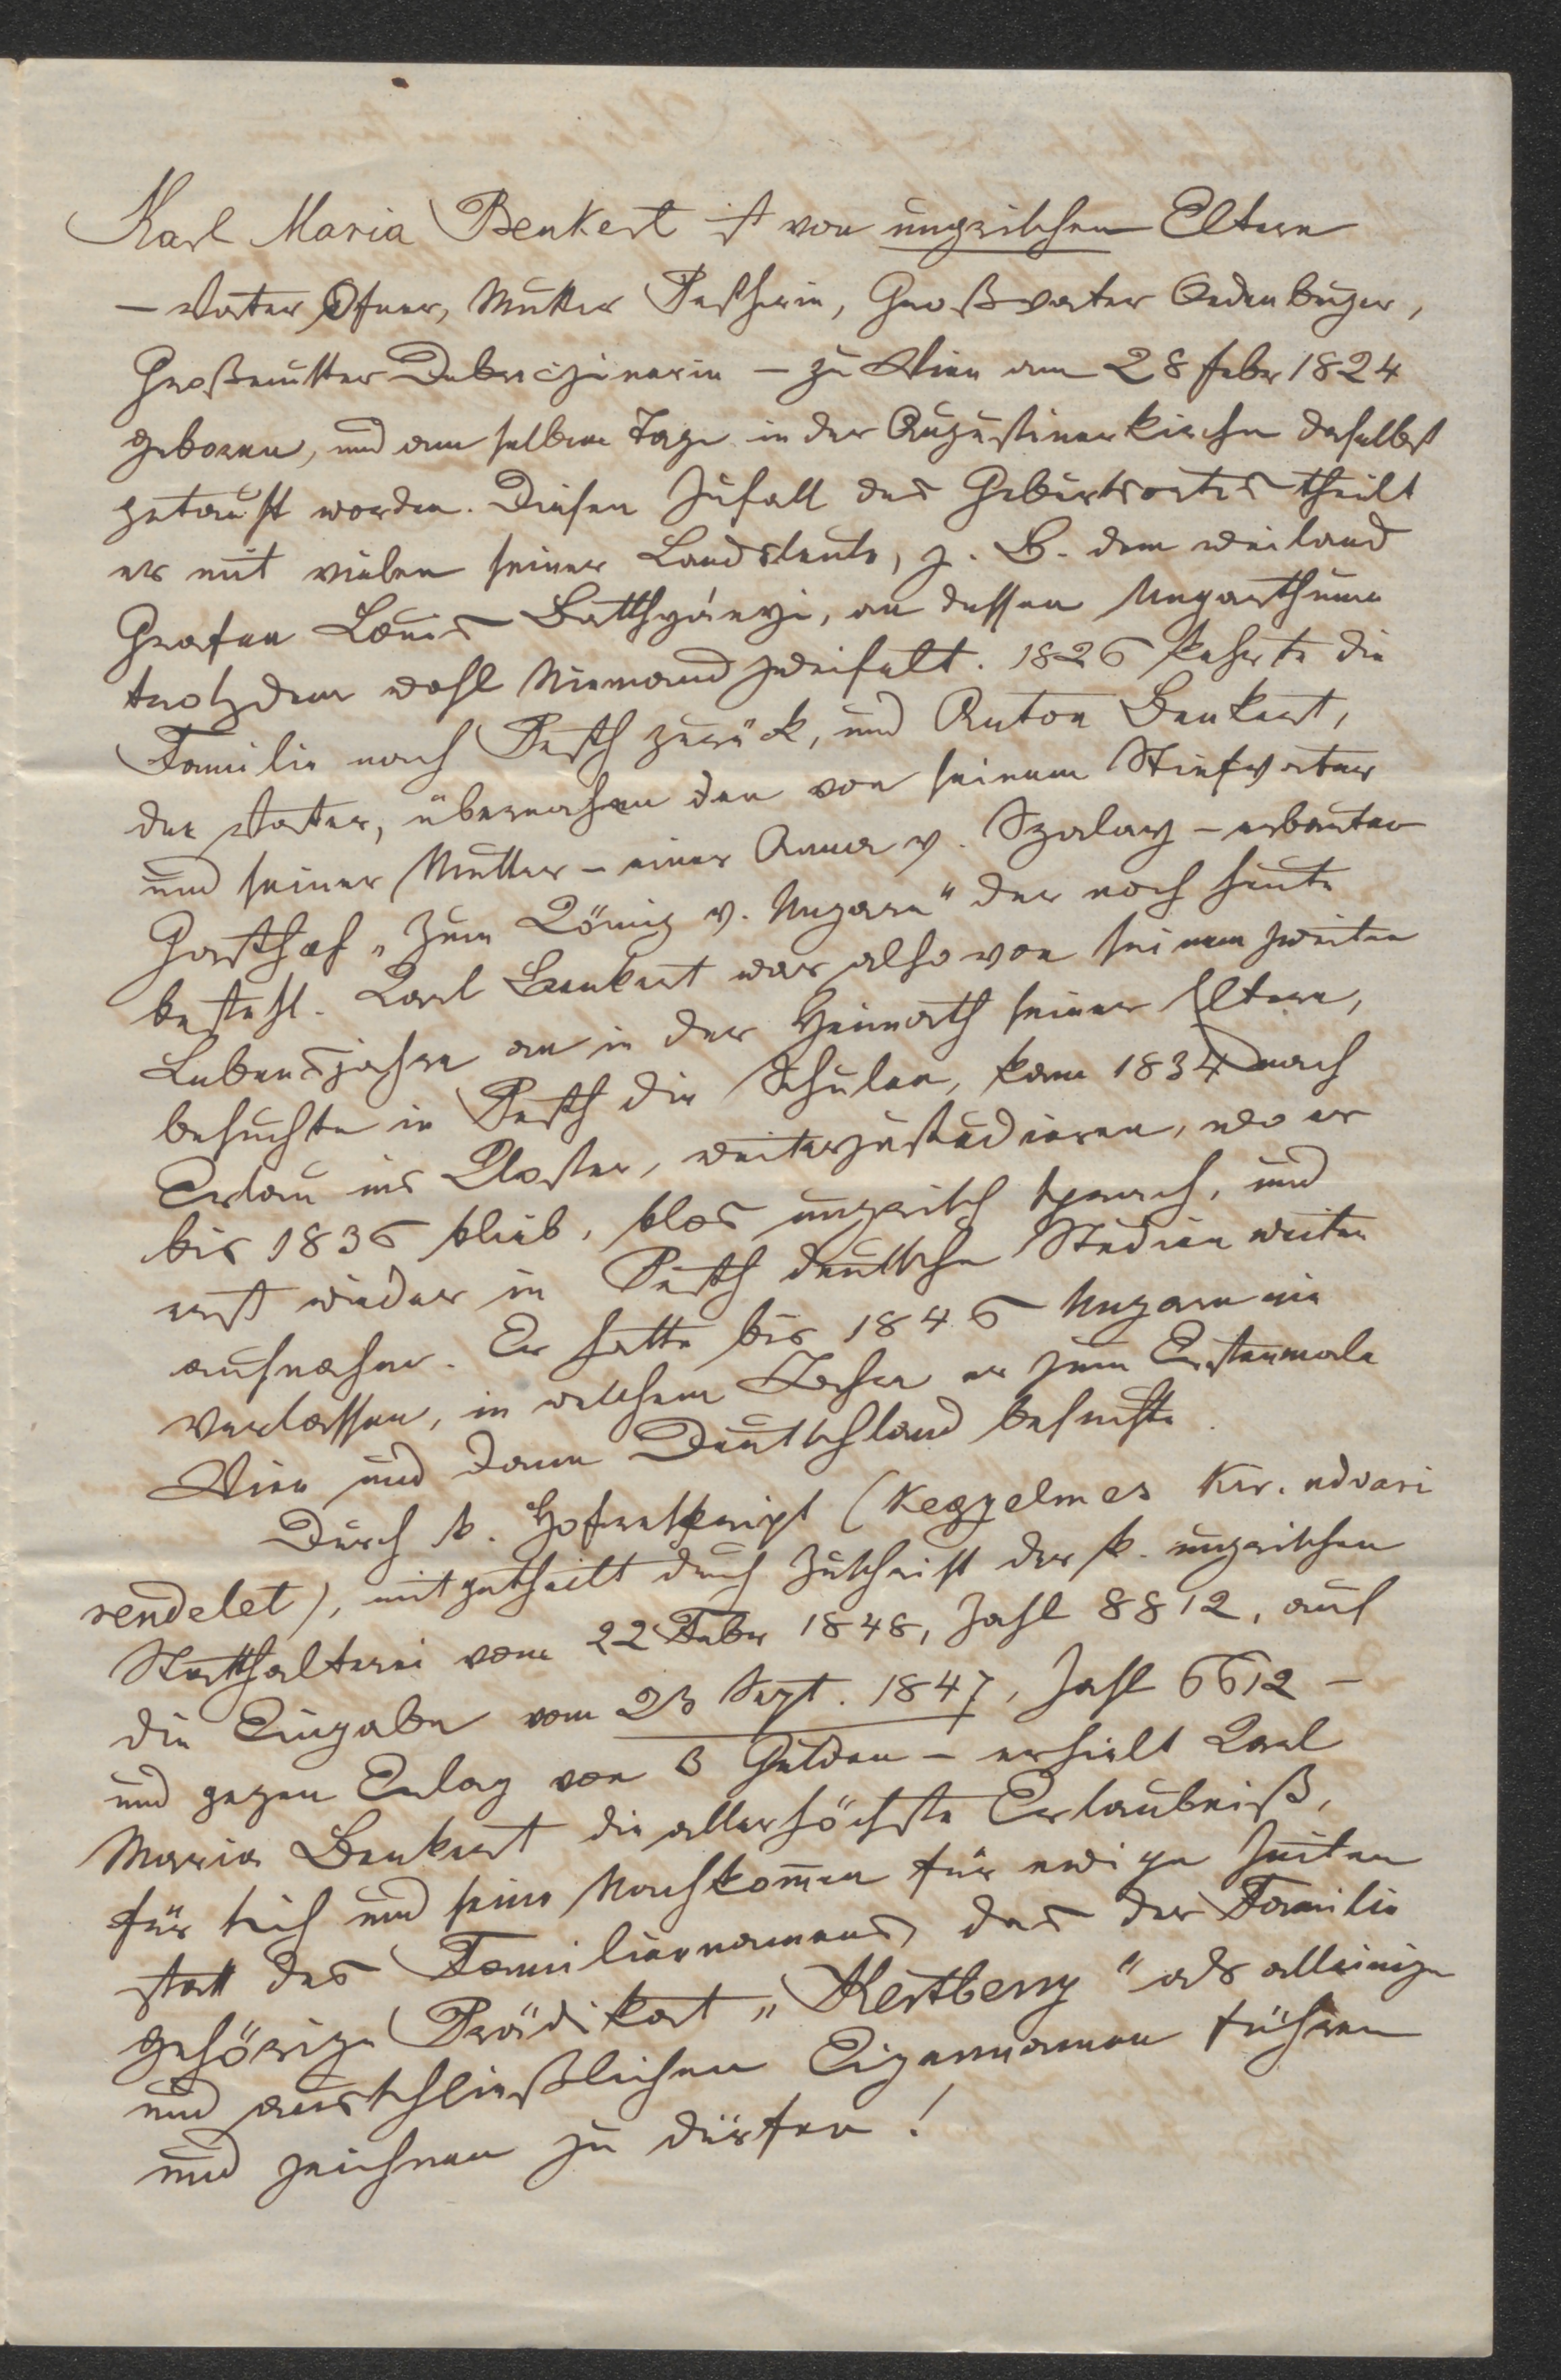 Karl Maria Benkert ist von ungrischen Eltern
– Vater Ofner, Mutter Pestherin, Großvater Oedenburger,
Großmutter Debreczinerin – zu Wien am 28 Febr 1824
geboren, und am selben Tage in der Augustinerkirche daselbst
getauft worden. Diesen Zufall des Geburtsortes theilt
er mit vielen seiner Landsleute, z. B. dem weiland
Grafen Louis Batthyányi, an dessen Ungarthum
trotzdem wohl Niemand zweifelt. 1826 kehrte die
Familie nach Pesth zurück, und Anton Benkert,
der Vater, übernahm den von seinem Stiefvater
und seiner Mutter – einer Anna v. Szalay – erbauten
Gasthof „Zum König v. Ungarn" der noch heute
besteht. Karl Benkert war also von seinem zweiten
Lebensjahre an in der Heimath seiner Eltern,
besuchte in Pesth die Schulen, kam 1834 nach
Erlau ins Kloster, weiterzustudieren, wo er
bis 1836 blieb, blos ungrisch sprach, und
erst wieder in Pesth deutsche Studien weiter
aufnahm. Er hatte bis 1846 Ungarn nie
verlassen, in welchem Jahre er zum Erstenmale
Wien und dann Deutschland besuchte.
Durch k. Hofreskript (Kegyelmes Kir. udvari
rendelet), mitgetheilt durch Zuschrift der k. ungrischen
Statthalterei vom 22 Febr 1848, Zahl 8812, auf
die Eingabe vom 23 Sept. 1847, Zahl 6612 –
und gegen Erlag von 3 Gulden – erhielt Karl
Maria Benkert die allerhöchste Erlaubniß,
für sich und seine Nachkom̅en für ewige Zeiten
statt des Familiennamens, das der Familie
gehörige Prädikat „Kertbeny" als alleinigen
und ausschließlichen Eigennamen führen
und zeichnen zu dürfen!